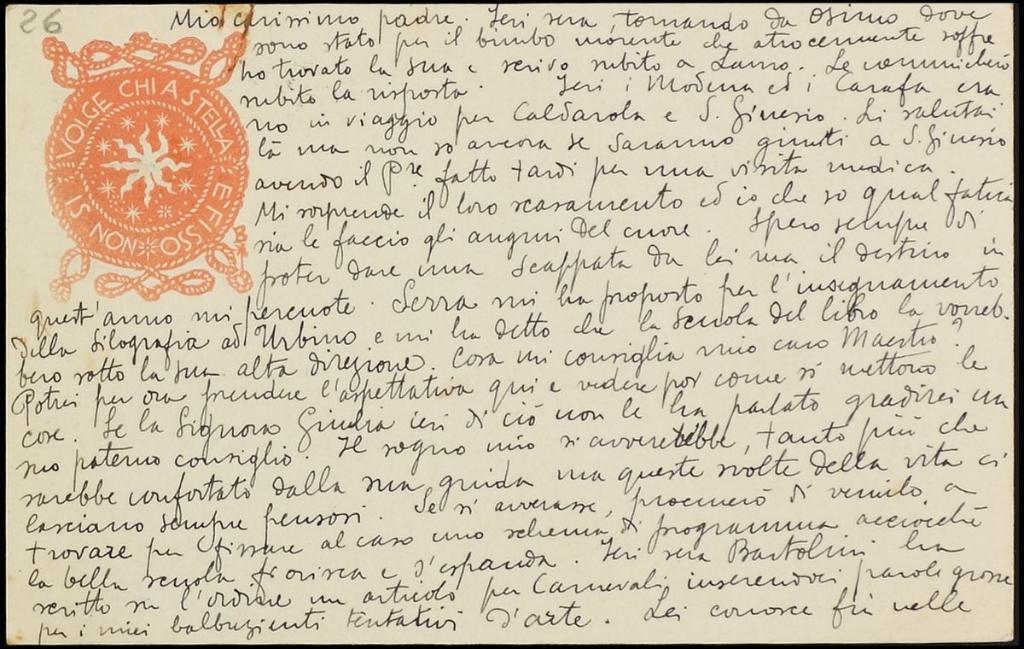 26
Mio carissimo padre. Ieri sera, tornando da Osimo dove
sono stato per il bimbo morente che atrocemente soffre
ho trovato la sua e scrivo subito a Lanno. Le comunicherò
subito la risposta. Ieri i Modena ed i Carafa era
no in viaggio per Caldarola e S. Ginesio. Li salutai
là ma non so ancora se saranno giunti a S. Ginesio
avendo il Pre. fatto tardi per una visita medica.
Mi sorprende il loro scasamento ed io che so qual fatica
sia le faccio gli auguri del cuore. Spero sempre di
poter dare una scappata da lei ma il destino in
quest'anno mi percuote. Serra mi ha proposto per l'insegnamento
della silografia ad Urbino e mi ha detto che la Scuola del libro la vorreb-
bero sotto la sua alta direzione. Cosa mi consiglia mio caro Maestro?
Potrei per ora prendere l'aspettativa qui e vedere poi come si mettono le
cose. Se la Signora Giulia ieri di ciò non le ha parlato gradirei un
suo paterno consiglio. Il sogno mio si avvererebbe, tanto più che
sarebbe confortato dalla sua guida ma queste svolte della vita ci
lasciano sempre pensosi. Se si avverasse, procurerò di venirlo a
trovare per fissare al caso uno schema di programma acciocchè
la bella scuola fiorisca e s'espanda. Ieri sera Bartolini ha
scritto su l'ordine un articolo per Carnevali inserendovi parole grosse
per i miei balbuzienti tentativi d'arte. Lei conosce fin nelle
NON SI VOLGE CHI A STELLA E FISSO